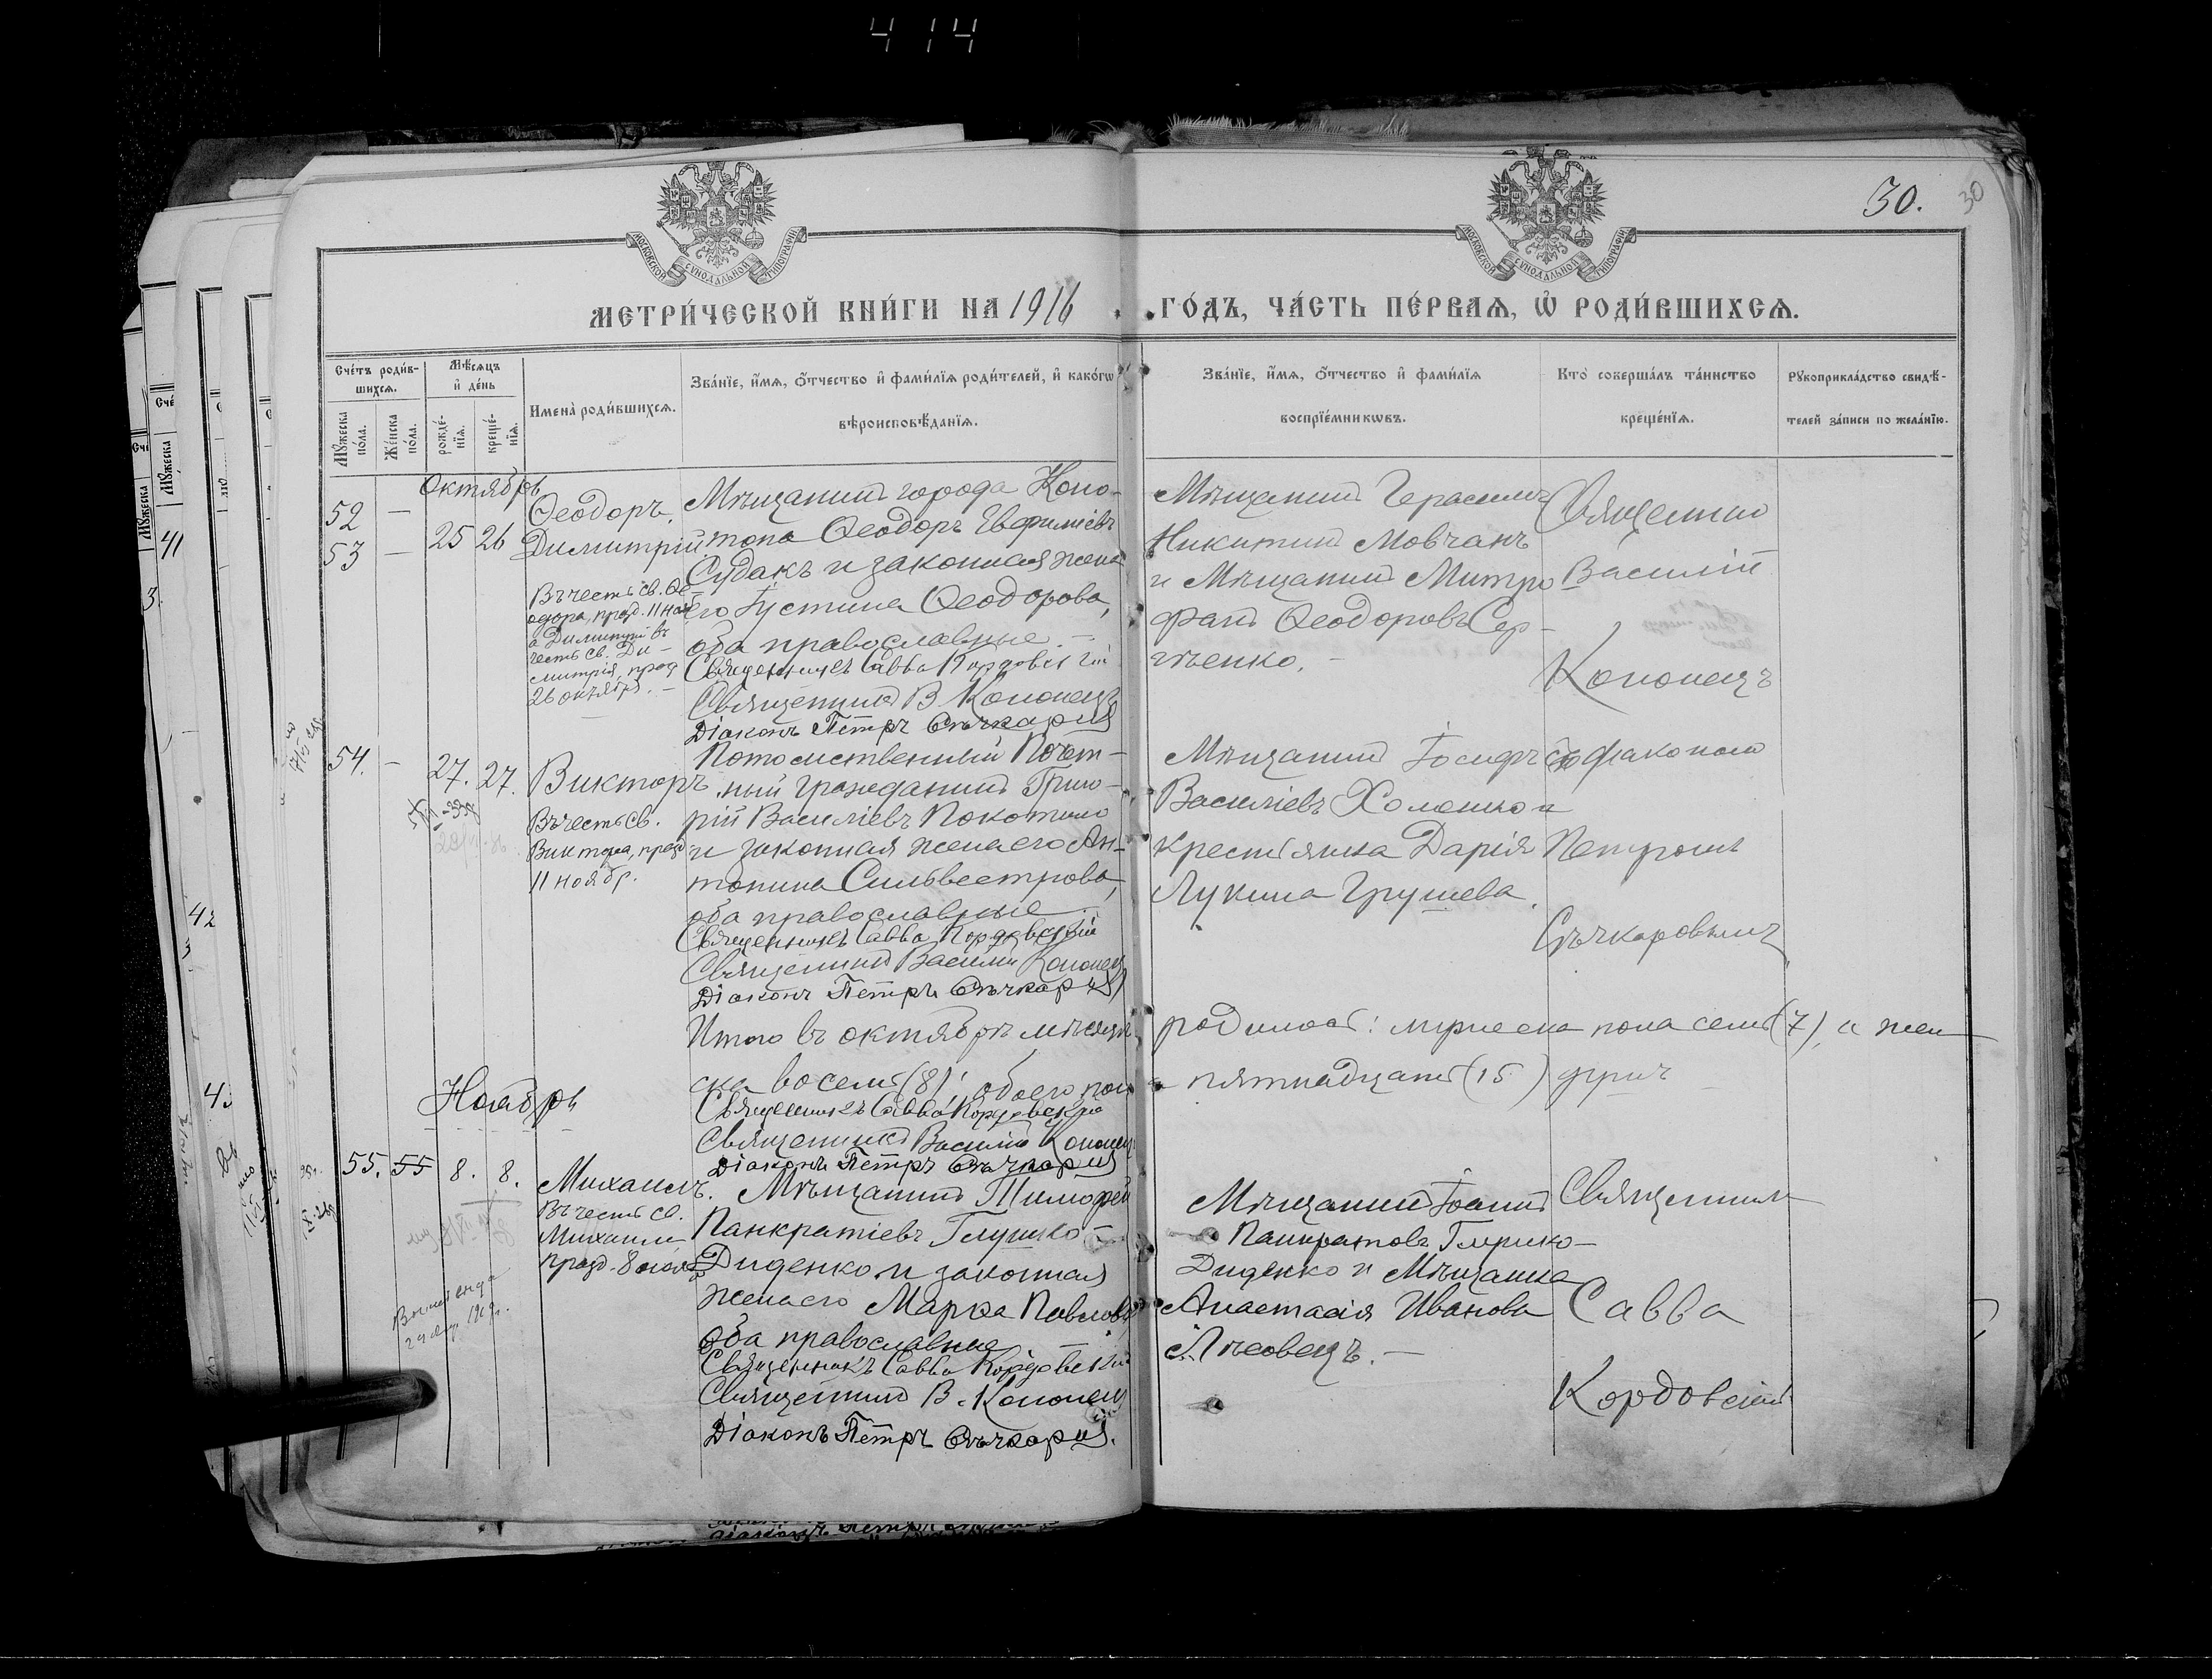 414
30.
30
МОСКОВСКОЙ СУНОДАЛЬНОЙ ТИПОГРАФІИ
МОСКОВСКОЙ СУНОДАЛЬНОЙ ТИПОГРАФІИ
МЕТРИ́ЧЕСКОЙ КНИ́ГИ НА 1916 ГО́ДЪ, ЧА́СТЬ ПЕ́РВАѦ, Ѡ҆ РОДИ́ВШИХСѦ.
Сче́тъ роди́в-
шихсѧ.
Мѣ́сѧцъ
и҆ де́нь
Мꙋ́жеска
по́ла.
Же́нска
по́ла.
рожде́-
нїѧ.
креще́-
нїѧ.
Имена̀ роди́вшихсѧ.
Зва́нїе, и҆́мѧ, ѻ҆́тчество и҆ фами́лїѧ роди́телей, и҆ како́гѡ
вѣроисповѣ́данїѧ.
Зва́нїе, и҆́мѧ, ѻ҆́тчество и҆ фами́лїѧ
воспрїе́мникѡвъ.
Кто̀ соверша́лъ та́инство
креще́нїѧ.
Рꙋкоприкла́дство свидѣ́-
телей за́писи по жела́нїю.
Октябрь
52 —
53 —
25 26
Ѳеодоръ.
Димитрій
Въ честь св. Ѳе-
одора, празд. 11 ноя
а Димитрій въ
честь св. Ди-
митрія, празд
26 октября. —
Мѣщанинъ города Коно-
топа Ѳеодоръ Евфиміевъ
Судакъ и законная жена
его Іустина Ѳеодорова,
оба православные. —
Священникъ Савва Кордовскій
Священникъ В. Кононецъ
Діаконъ Петръ Сѣчкарь
Мѣщанинъ Герасимъ
Никитинъ Мовчанъ
и Мѣщанинъ Митро
фанъ Ѳеодоровъ Сер-
гѣенко. —
Священникъ
Василій
Кононецъ
54. —
27. 27.
Викторъ
Въ честь св.
Виктора, празд
11 ноябр.
Потомственный Почет-
ный Гражданинъ Григо-
рій Василіевъ Покотило
и законная жена его Ан-
тонина Сильвестрова,
оба православные
Священникъ Савва Кордовскій
Священникъ Василій Кононец
Діаконъ Петръ Сѣчкарь
Мѣщанинъ Іосифъ
Василіевъ Холошно и
крестьянка Дарія
Лукина Грушева.
съ діакономъ
Петромъ
Сѣчкаровымъ
Итого въ октябрѣ мѣсяцѣ родилось: мужеска пола семь (7), и жен
ска восемь (8); обоего пола пятнадцать (15) душъ
Священникъ Савва Кордовскій
Священникъ Василій Кононец
Діаконъ Петръ Сѣчкарь
Ноябрь
55. 55 8. 8.
Михаилъ.
Въ честь св.
Михаила
празд. 8 ноября
Мѣщанинъ Тимофей
Панкратіевъ Глушко —
Диденко и законная
жена его Марфа Павлова
оба православные —
Священникъ Савва Кордовскій
Священникъ В. Кононец
Діаконъ Петръ Сѣчкарь.
Мѣщанинъ Іоаннъ
Панкратовъ Глушко —
Диденко и Мѣщанка
Анастасія Иванова
Лѣсовецъ. —
Священникъ
Савва
Кордовскій
41
42